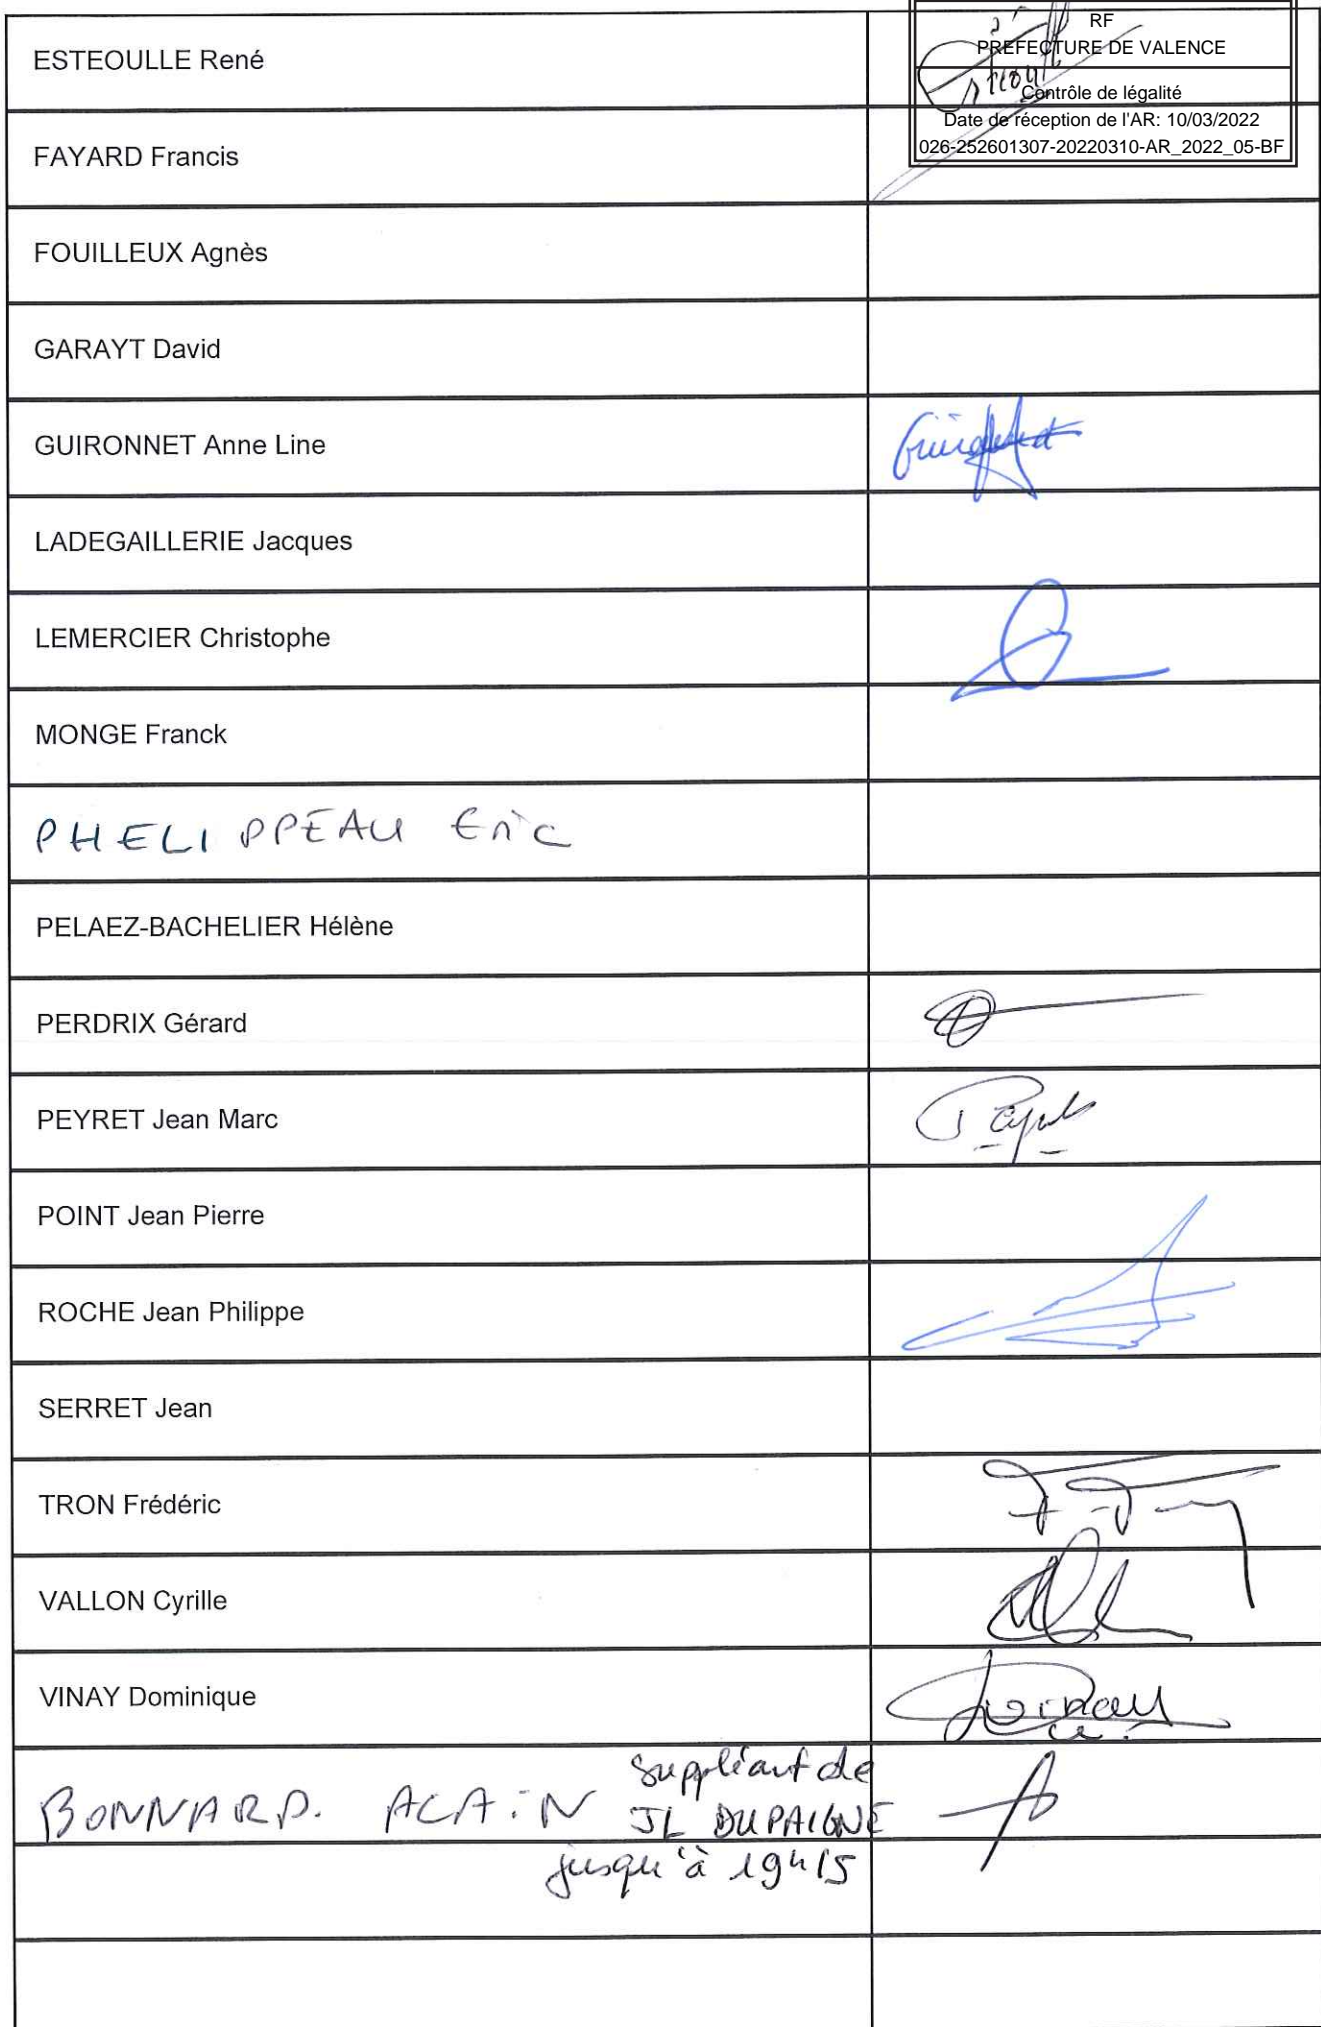 ESTEOULLE René
RF
PREFECTURE DE VALENCE
Contrôle de légalité
Date de réception de l'AR: 10/03/2022
026-252601307-20220310-AR_2022_05-BF
FAYARD Francis
FOUILLEUX Agnès
GARAYT David
GUIRONNET Anne Line
LADEGAILLERIE Jacques
LEMERCIER Christophe
MONGE Franck
PHELIPPEAU Eric
PELAEZ-BACHELIER Hélène
PERDRIX Gérard
PEYRET Jean Marc
POINT Jean Pierre
ROCHE Jean Philippe
SERRET Jean
TRON Frédéric
VALLON Cyrille
VINAY Dominique
BONNARD. ALAIN suppléant de
JL DUPAIGNE
jusqu'à 19h15